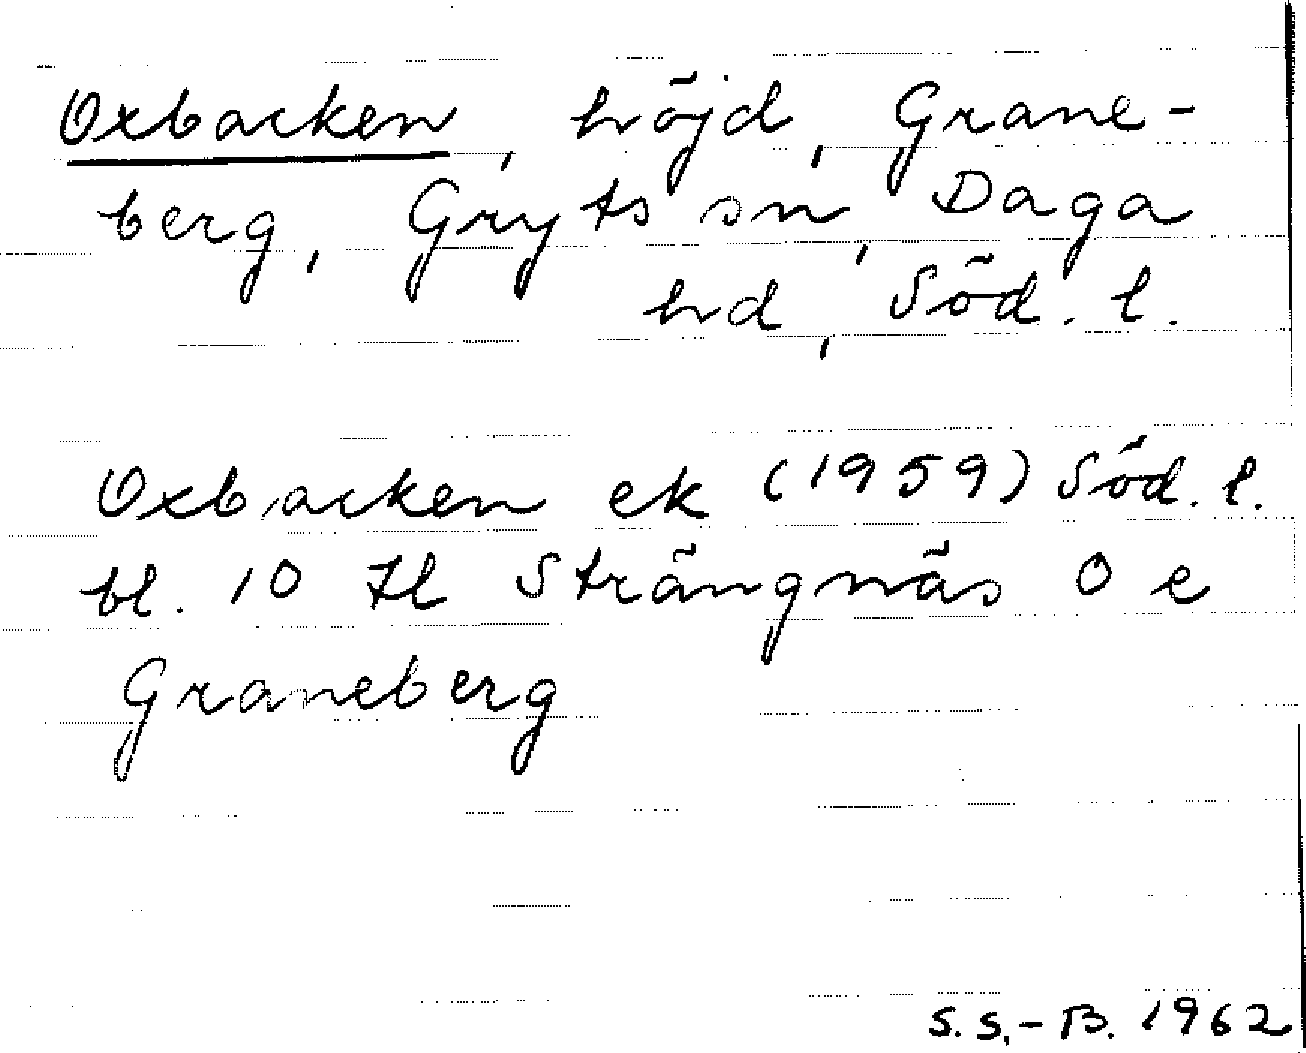 Oxbacken, höjd, Grane-
berg, Gryts sn, Daga
hd, Söd. l.
Oxbacken ek (1959) Söd. l.
bl. 10 H Strängnäs O e
Graneberg
S.S.-B. 1962